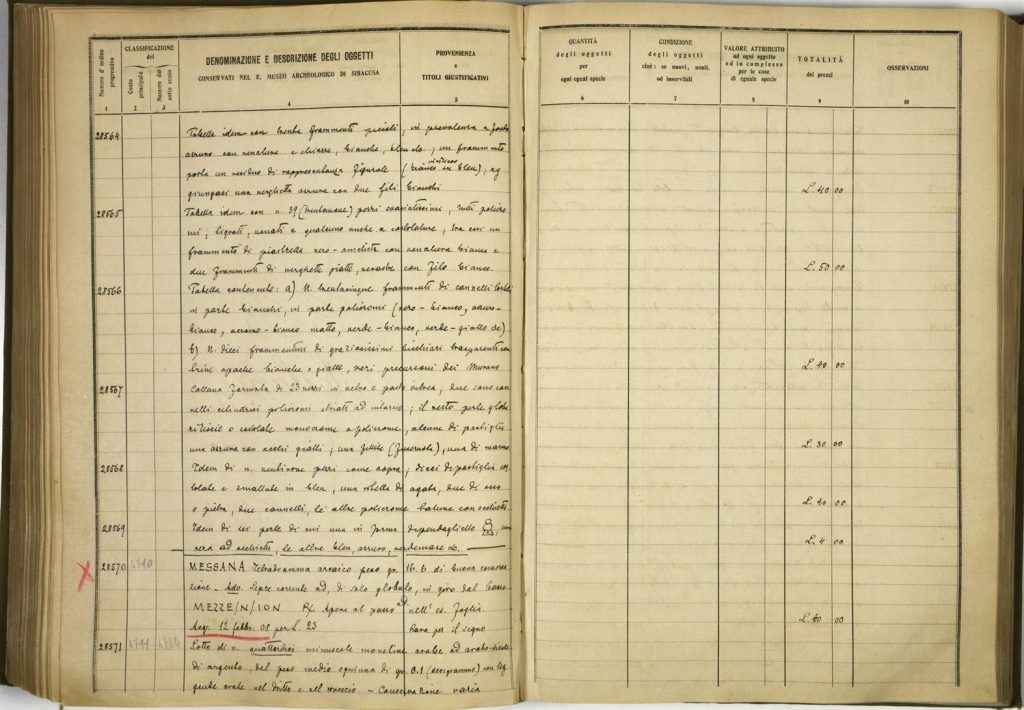 Numero d'ordine progressivo
CLASSIFICAZIONE
del
Conto principale
Numero del sotto conto
DENOMINAZIONE E DESCRIZIONE DEGLI OGGETTI
CONSERVATI NEL R. MUSEO ARCHEOLOGICO DI SIRACUSA
PROVENIENZA
e
TITOLI GIUSTIFICATIVI
1 2 3 4 5
QUANTITÀ
degli oggetti
per
ogni eguni specie
CONDIZIONE
degli oggetti
cioè: se nuovi, usati,
od inservibili
VALORE ATTRIBUITO
ad ogni oggetto
od in complesso
per le cose
di eguale specie
TOTALITÀ
dei prezzi
OSSERVAZIONI
6 7 8 9 10
28564 Tabella idem con trenta frammenti piccoli, in prevalenza a fondo
azzurro con venature e chiazze, bianche, bleu &c; un frammento
porta un residuo di rappresentanza figurale (bianco in bleu); ag
giungasi una verghetta azzurra con due fili bianchi L. 40 00
28565 Tabella idem con n. 39 (trentanove) pezzi svariatissimi, tutti policro
mi, tigrati, venati e qualcuno anche a costolature; tra essi un
frammento di piastrella nero-ametista con venatura bianca e
due frammenti di verghette piatte, nerastre con filo bianco. L. 50 00
28566 Tabella contenente: a) N. trentacinque frammenti di cannelli tortili
in parte bianchi, in parte policromi (nero-bianco, azzurro-
bianco, bianco matto, verde-bianco, verde-giallo &c)
b) N. dieci frammenti di graziosissimi bicchieri trasparenti con
opache bianche e gialle, veri precursori dei Murano L. 40 00
28567 Collana formata di 23 pezzi in pasta vitrea; due sono can
nelli cilindrici policromi striati ad intarsio; il resto perle globu
o costolate monocrome e policrome, alcune di pastiglia
una azzurra con occhi gialli; una fittile, una di marmo L. 30 00
28568 Idem di n. ventinove pezzi come sopra; dieci di pastiglia co
stolate e smaltate in bleu, una di agata, due di osso
o pietra, due cannelli, le altre policrome talune con occhietti L. 40 00
28569 Idem di sei perle di cui una in forma di pendaglietto, una
nera ad occhietti, le altre bleu, azzurro, verdemare &c. L. 4 00
28570 4710 MESSANA Tetradramma arcaico peso gr. 16.6 di buona conserva
zione. Ado. Lepre corrente ad, di sotto globulo, in giro dal basso
MEZZE/N/ION Rx Apene al passo ad nell' es. foglia
Acq. 12 febbr. 08 per L. 23 Rara per il segno L. 40 00
28571 4711 4724 Lotto di n. quattordici minuscole monetine arabe ad arabo-
di argento, del peso medio ogniuna di gr. 0.1 (decigrammo) con leg
gende arabe nel dritto e nel rovescio. - Conservazione varia